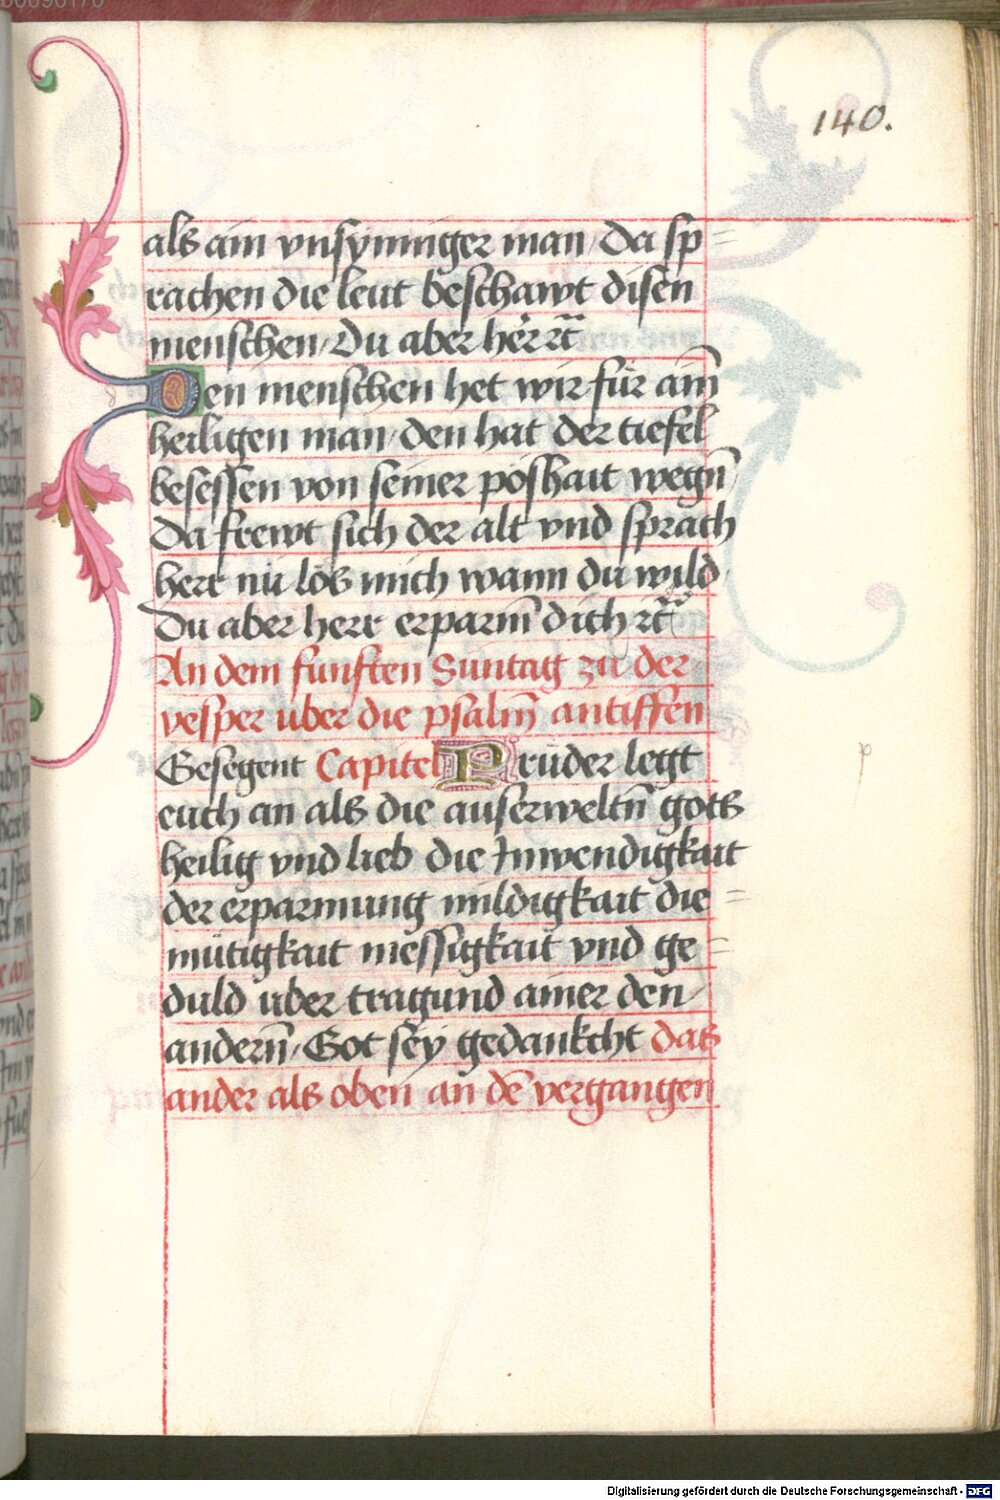 140.
als ain vnsynniger man / da sp=
rachen die leut beschawt disen
menschen / Du aber herr rc̄
Den menschen het wir für aim̄
heiligen man / den hat der tiefel
besessen von seiner poshait wegn̄
Da frewt sich der alt vnd sprach
herr nu lös mich wann du wild
Du aber herr erparm̄ dich rc̄
An dem funften Suntag zu der
vesper uber die psalm̄ antiffen
Gesegent Capitel Prüder legt
euch an als die auserweltn̄ gots
heilig vnd lieb die Inwendigkait
der erparmung mildigkait die=
mütigkait messigkait vnd ge=
duld uber tragund ainer den
andern̄ / Got sey gedankcht das
ander als oben an dē vergangen
Digitalisierung gefördert durch die Deutsche Forschungsgemeinschaft - DFG